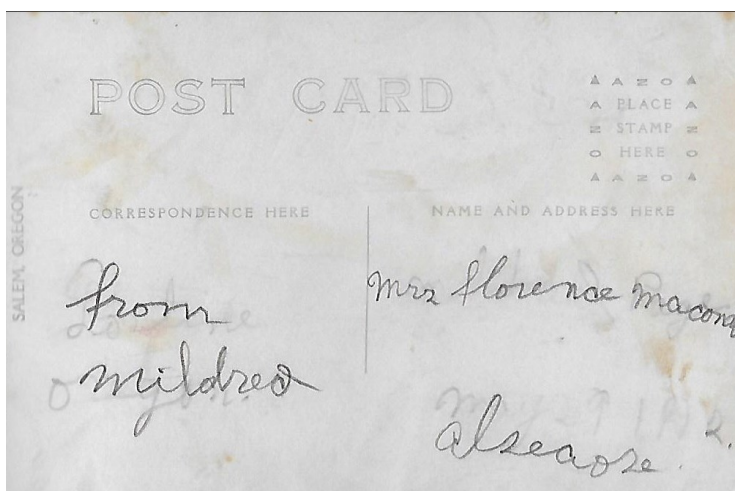 POST CARD
AZO
PLACE
STAMP
HERE
AZO
SALEM, OREGON
CORRESPONDENCE HERE
NAME AND ADDRESS HERE
from
mildred
Mrs florence
alsea ore.